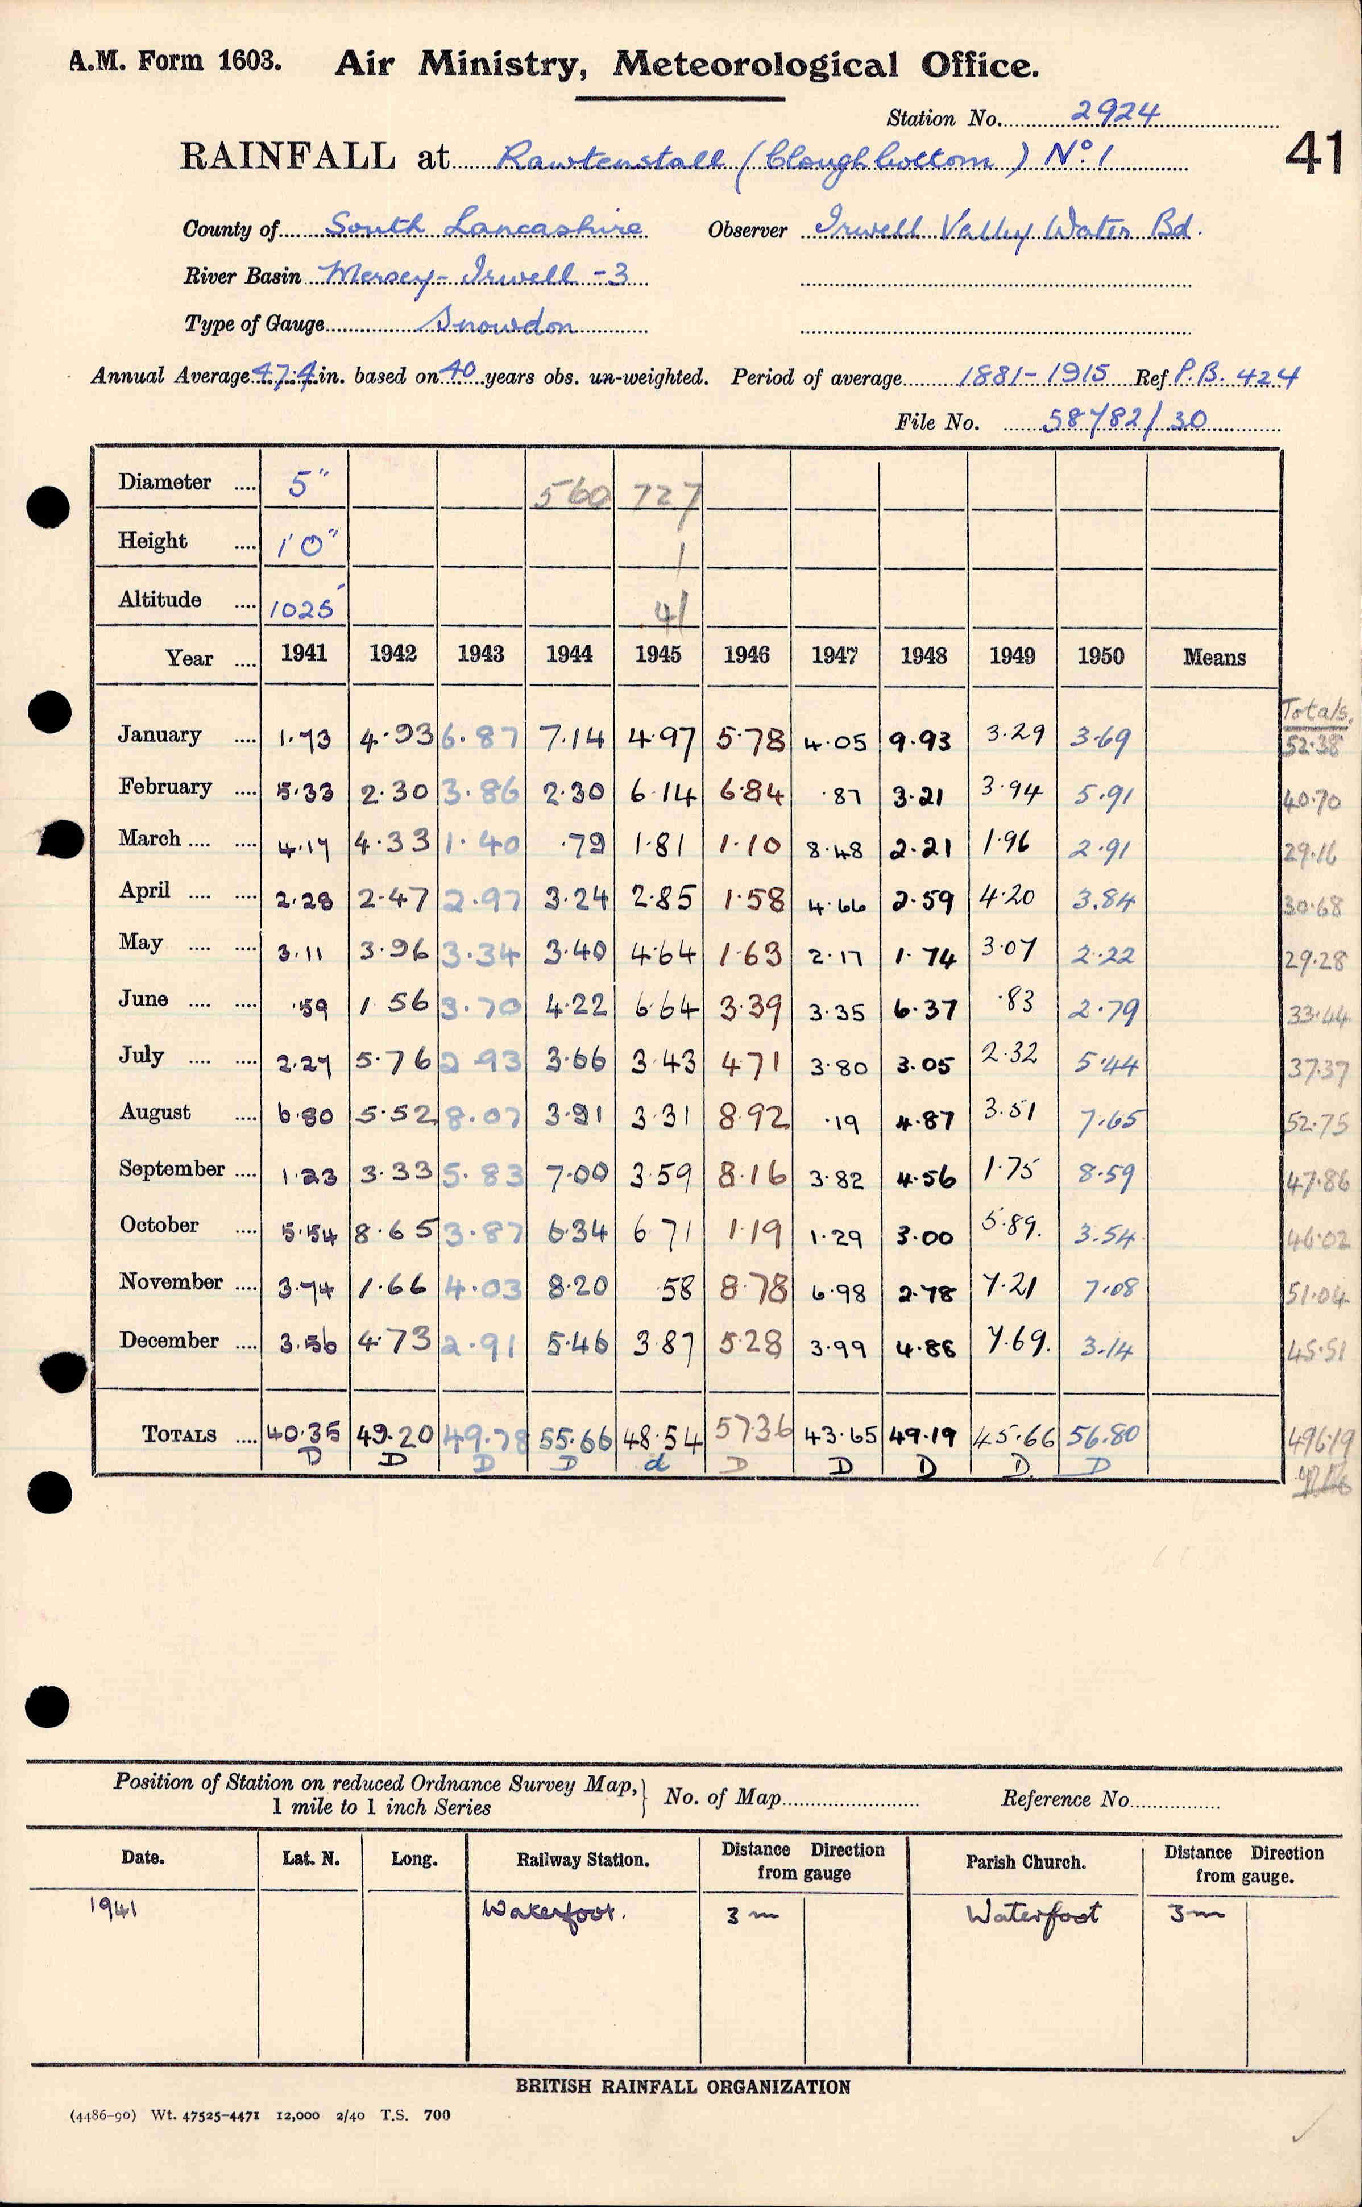 A.M. Form 1603. Air Ministry, Meteorological Office.
Station No. 2924
41
RAINFALL at Rawtenstall (Cloughbottom) No. 1
County of South Lancashire Observer Irwell Valley Water Bd.
River Basin Mersey-Irwell -3
Type of Gauge Snowdon
Annual Average 47.4 in. based on 40 years obs. un-weighted. Period of average 1881-1915 Ref P.B. 424
File No. 58782/30
Diameter .... 5" 560 727
Height .... 1'0" 1
Altitude .... 1025' 41
Year .... 1941 1942 1943 1944 1945 1946 1947 1948 1949 1950 Means
Totals.
January .... 1.73 4.93 6.87 7.14 4.97 5.78 4.05 9.93 3.29 3.69 52.38
February .... 5.33 2.30 3.86 2.30 6.14 6.84 .87 3.21 3.94 5.91 40.70
March .... .... 4.17 4.33 1.40 .79 1.81 1.10 8.48 2.21 1.96 2.91 29.16
April .... .... 2.28 2.47 2.97 3.24 2.85 1.58 4.66 2.59 4.20 3.84 30.68
May .... .... 3.11 3.96 3.34 3.40 4.64 1.63 2.17 1.74 3.07 2.22 29.28
June .... .... .59 1.56 3.70 4.22 6.64 3.39 3.35 6.37 .83 2.79 33.44
July .... .... 2.27 5.76 2.93 3.66 3.43 4.71 3.80 3.05 2.32 5.44 37.37
August .... 6.80 5.52 8.07 3.91 3.31 8.92 .19 4.87 3.51 7.65 52.75
September .... 1.23 3.33 5.83 7.00 3.59 8.16 3.82 4.56 1.75 8.59 47.86
October .... 5.54 8.65 3.87 6.34 6.71 1.19 1.29 3.00 5.89. 3.54 46.02
November .... 3.74 1.66 4.03 8.20 .58 8.78 6.98 2.78 7.21 7.08 51.04
December .... 3.56 4.73 2.91 5.46 3.87 5.28 3.99 4.88 7.69. 3.14 45.51
TOTALS .... 40.35 49.20 49.78 55.66 48.54 57.36 43.65 49.19 45.66 56.80 496.19
D D D D d D D D D D
Position of Station on reduced Ordnance Survey Map,
1 mile to 1 inch Series } No. of Map Reference No.
Date. Lat. N. Long. Railway Station. Distance Direction from gauge Parish Church. Distance Direction from gauge.
1941 Waterfoot. 3 m Waterfoot 3 m
BRITISH RAINFALL ORGANIZATION
(4486-90) Wt. 47525-4471 12,000 2/40 T.S. 700